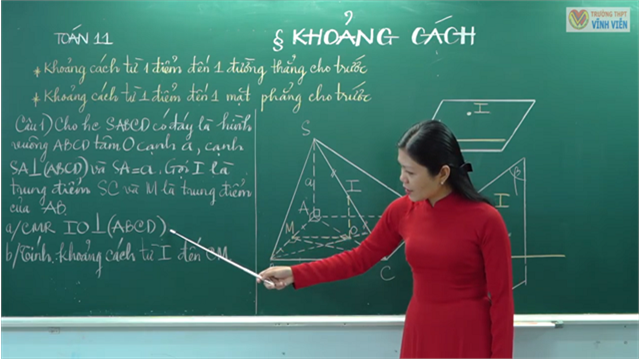 TRƯỜNG THPT
VĨNH VIỄN
TOÁN 11
§ KHOẢNG CÁCH
* Khoảng cách từ 1 điểm đến 1 đường thẳng cho trước
* Khoảng cách từ 1 điểm đến 1 mặt phẳng cho trước
Câu 1) Cho hc SABCD có đáy là hình
vuông ABCD tâm O cạnh a, cạnh
SA⊥(ABCD) và SA=a. Gọi I là
trung điểm SC và M là trung điểm
của AB.
a/ CMR IO⊥(ABCD)
b/ Tính khoảng cách từ I đến CM
I
S
a
I
A
M
O
C
I